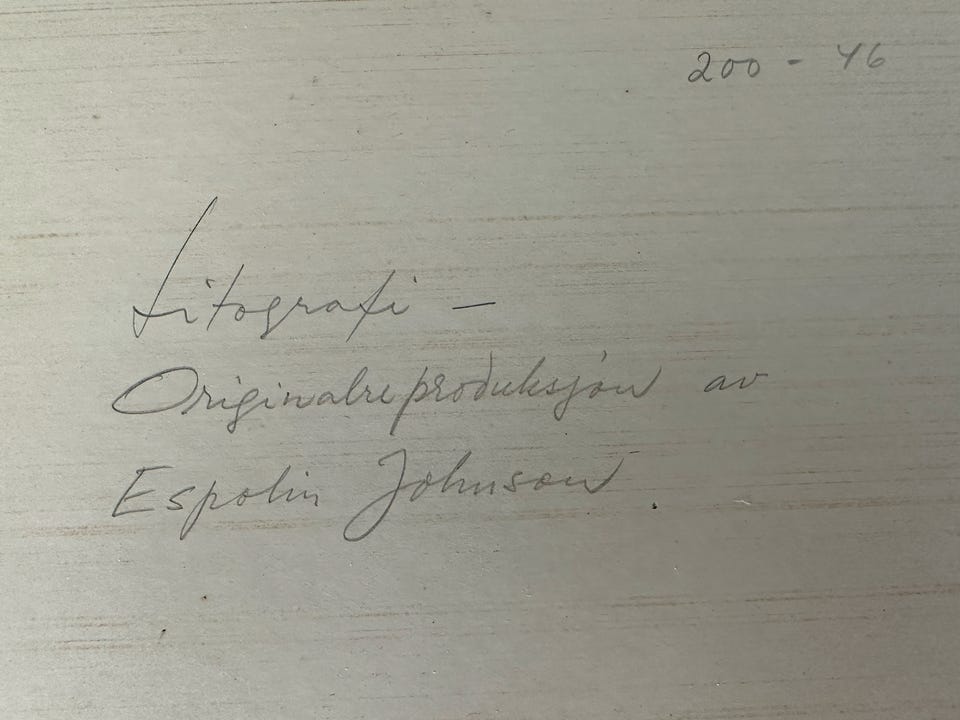 200 - 46
Litografi -
Originalreproduksjon av
Espolin Johnson.